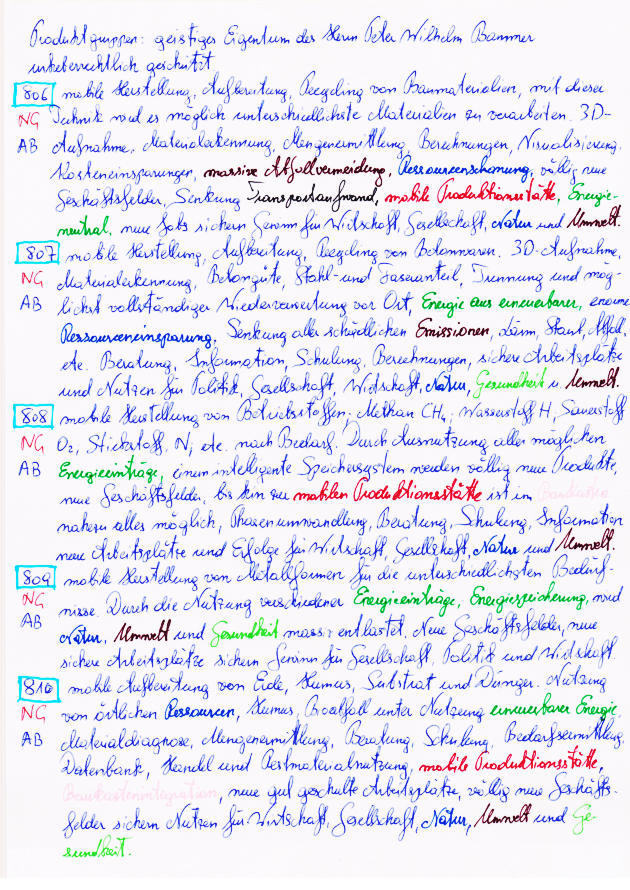 Produktgruppen: geistiges Eigentum des Herrn Peter Wilhelm Bammer
urheberrechtlich geschützt
806 mobile Herstellung, Aufbereitung, Recycling von Baumaterialien, mit dieser
NG Technik wird es möglich unterschiedlichste Materialien zu verarbeiten. 3D-
AB Aufnahme, Materialerkennung, Mengenermittlung, Berechnungen, Visualisierung.
Kosteneinsparungen, massive Abfallvermeidung, Ressourcenschonung, völlig neue
Geschäftsfelder, Senkung Transportaufwand, mobile Produktionsstätte, Energie-
neutral, neue Jobs sichern Gewinn für Wirtschaft, Gesellschaft, Natur und Umwelt.
807 mobile Herstellung, Aufbereitung, Recycling von Betonwaren. 3D-Aufnahme,
NG Materialerkennung, Betongüte, Stahl- und Faseranteil, Trennung und mög-
AB lichst vollständiger Wiederverwertung vor Ort, Energie aus erneuerbarer, enorme
Ressourceneinsparung, Senkung aller schädlichen Emissionen, Lärm, Staub, Abfall,
etc. Beratung, Information, Schulung, Berechnungen, sichere Arbeitsplätze
und Nutzen für Politik, Gesellschaft, Wirtschaft, Natur, Gesundheit u. Umwelt.
808 mobile Herstellung von Betriebsstoffen; Methan CH4; Wasserstoff H, Sauerstoff
NG O2, Stickstoff, N, etc. nach Bedarf. Durch Ausnutzung aller möglichen
AB Energieeinträge, einem intelligente Speichersystem werden völlig neue Produkte,
neue Geschäftsfelder, bis hin zu mobilen Produktionsstätte ist im Baukasten
nahezu alles möglich, Phasenumwandlung, Beratung, Schulung, Information
neue Arbeitsplätze und Erfolge für Wirtschaft, Gesellschaft, Natur und Umwelt.
809 mobile Herstellung von Metallformen für die unterschiedlichsten Bedürf-
NG nisse. Durch die Nutzung verschiedener Energieeinträge, Energiespeicherung, wird
AB Natur, Umwelt und Gesundheit massiv entlastet, Neue Geschäftsfelder, neue
sichere Arbeitsplätze sichern Gewinn für Gesellschaft, Politik und Wirtschaft.
810 mobile Aufbereitung von Erde, Humus, Substrat und Dünger. Nutzung
NG von örtlichen Ressourcen, Humus, Bioabfall unter Nutzung erneuerbarer Energie.
AB Materialdiagnose, Mengenermittlung, Beratung, Schulung, Bedarfsermittlung,
Datenbank, Handel und Restmaterialnutzung, mobile Produktionsstätte,
Baukastenintegration, neue gut geschulte Arbeitsplätze, völlig neue Geschäfts-
felder sichern Nutzen für Wirtschaft, Gesellschaft, Natur, Umwelt und Ge-
sundheit.